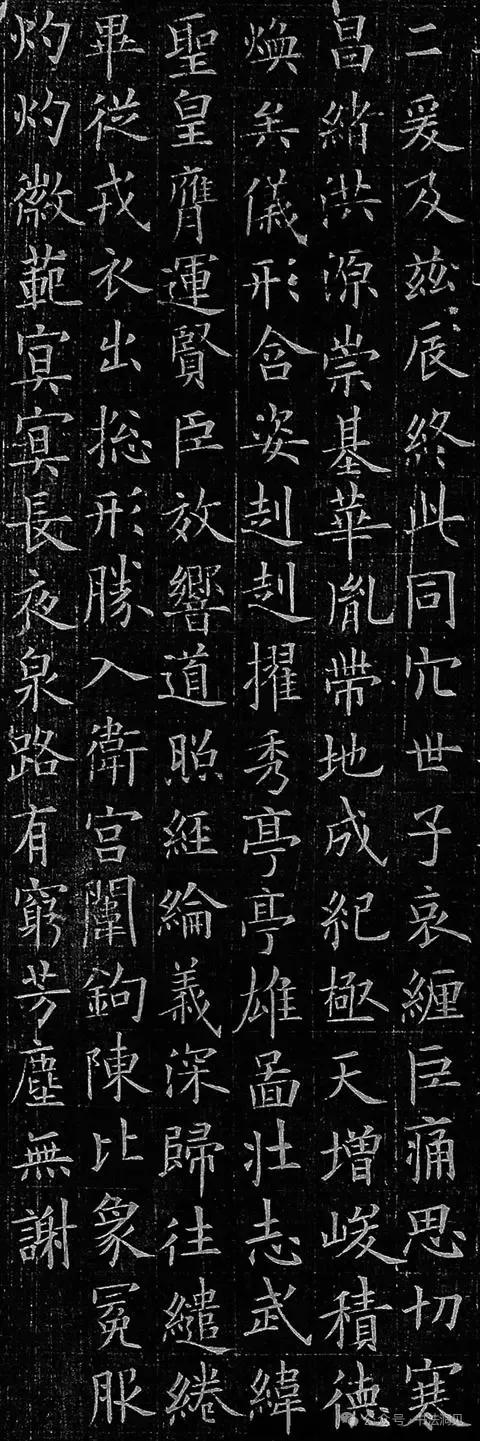 二爰及茲辰終此同穴世子哀纏巨痛思切寒
昌緒洪源崇基華胤帶地成紀極天增峻積德
煥矣儀形含姿赳赳擢秀亭亭雄啚壯志武緯
聖皇膺運賢臣放響道照經綸義深歸往繾綣
畢從戎衣出捴形勝入衛宮闈鉤陳比象冕服
灼灼徽範寘寘長夜泉路有窮芳塵無謝
公众号·书法洞见